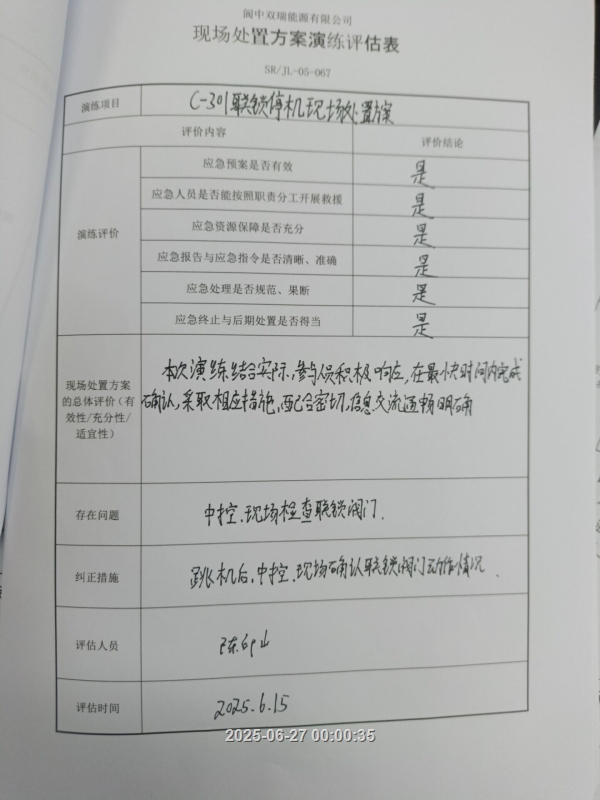 阆中双瑞能源有限公司
现场处置方案演练评估表
SR/JL-05-067
演练项目 C-301联锁停机现场处置方案
评价内容 评价结论
演练评价
应急预案是否有效 是
应急人员是否能按照职责分工开展救援 是
应急资源保障是否充分 是
应急报告与应急指令是否清晰、准确 是
应急处理是否规范、果断 是
应急终止与后期处置是否得当 是
现场处置方案
的总体评价(有
效性/充分性/
适宜性)
本次演练结合实际,参与人员积极响应,在最快时间内完成
确认,采取相应措施,配合密切,信息交流通畅明确
存在问题 中控、现场检查联锁阀门.
纠正措施 跳机后,中控、现场确认联锁阀门动作情况.
评估人员 陈
评估时间 2025.6.15
2025-06-27 00:00:35